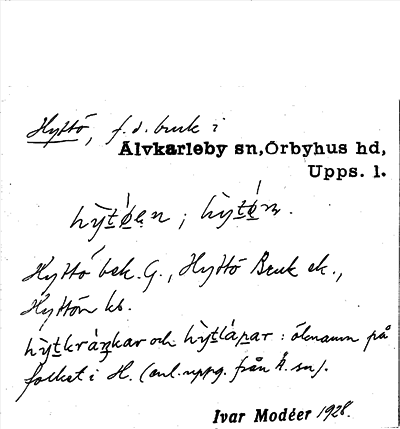 Hyttö, f.d. bruk i
Älvkarleby sn, Örbyhus hd,
Upps. l.
Hyttö bek. G., Hyttö Bruk ek.,
Hyttön kb.
och : öknamn på
folket i H. (enl. uppg. från Ä. sn).
Ivar Modéer 1928.